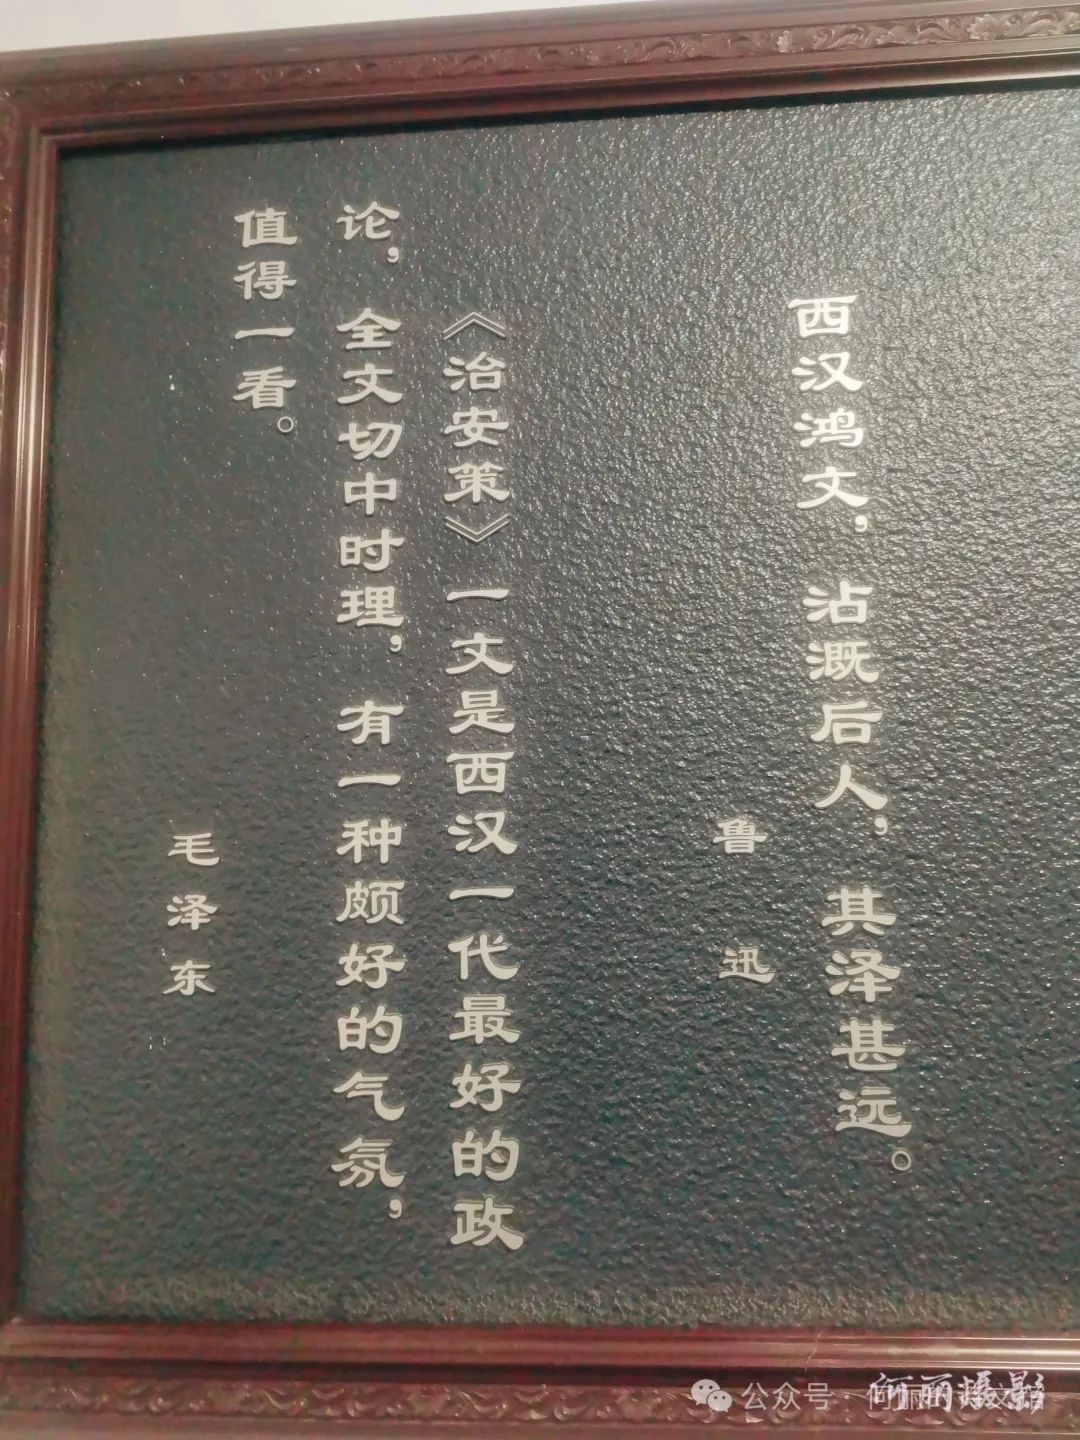 西汉鸿文，沾溉后人，其泽甚远。
鲁迅
《治安策》一文是西汉一代最好的政
论，全文切中时理，有一种颇好的气氛，
值得一看。
毛泽东
何丽摄影
公众号·何丽的